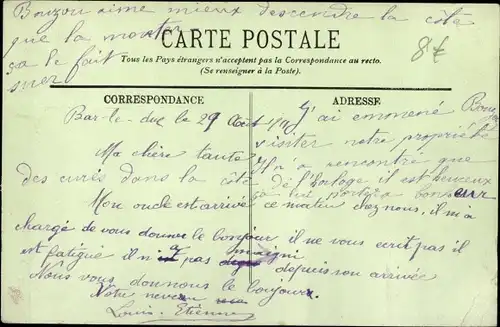 Bouzou aime mieux descendre la côte
que la monter
ça le fait
suer
8€
CARTE POSTALE
Tous les Pays étrangers n'acceptent pas la Correspondance au recto.
(Se renseigner à la Poste).
CORRESPONDANCE
ADRESSE
Bar-le-duc le 29 Août
Ma chère tante
des curés dans la côte
Mon oncle est arrivé ce matin chez nous, il m'a
chargé de vous donner le bonjour il ne vous écrit pas il
est fatigué il n'a pas depuis son arrivée
Nous vous donnons le bonjour.
Votre neveu
Louis Etienne
J'ai emmené
visiter notre propriété
Il n'a rencontré que
de l'horloge il est heureux
ça lui portera bonheur